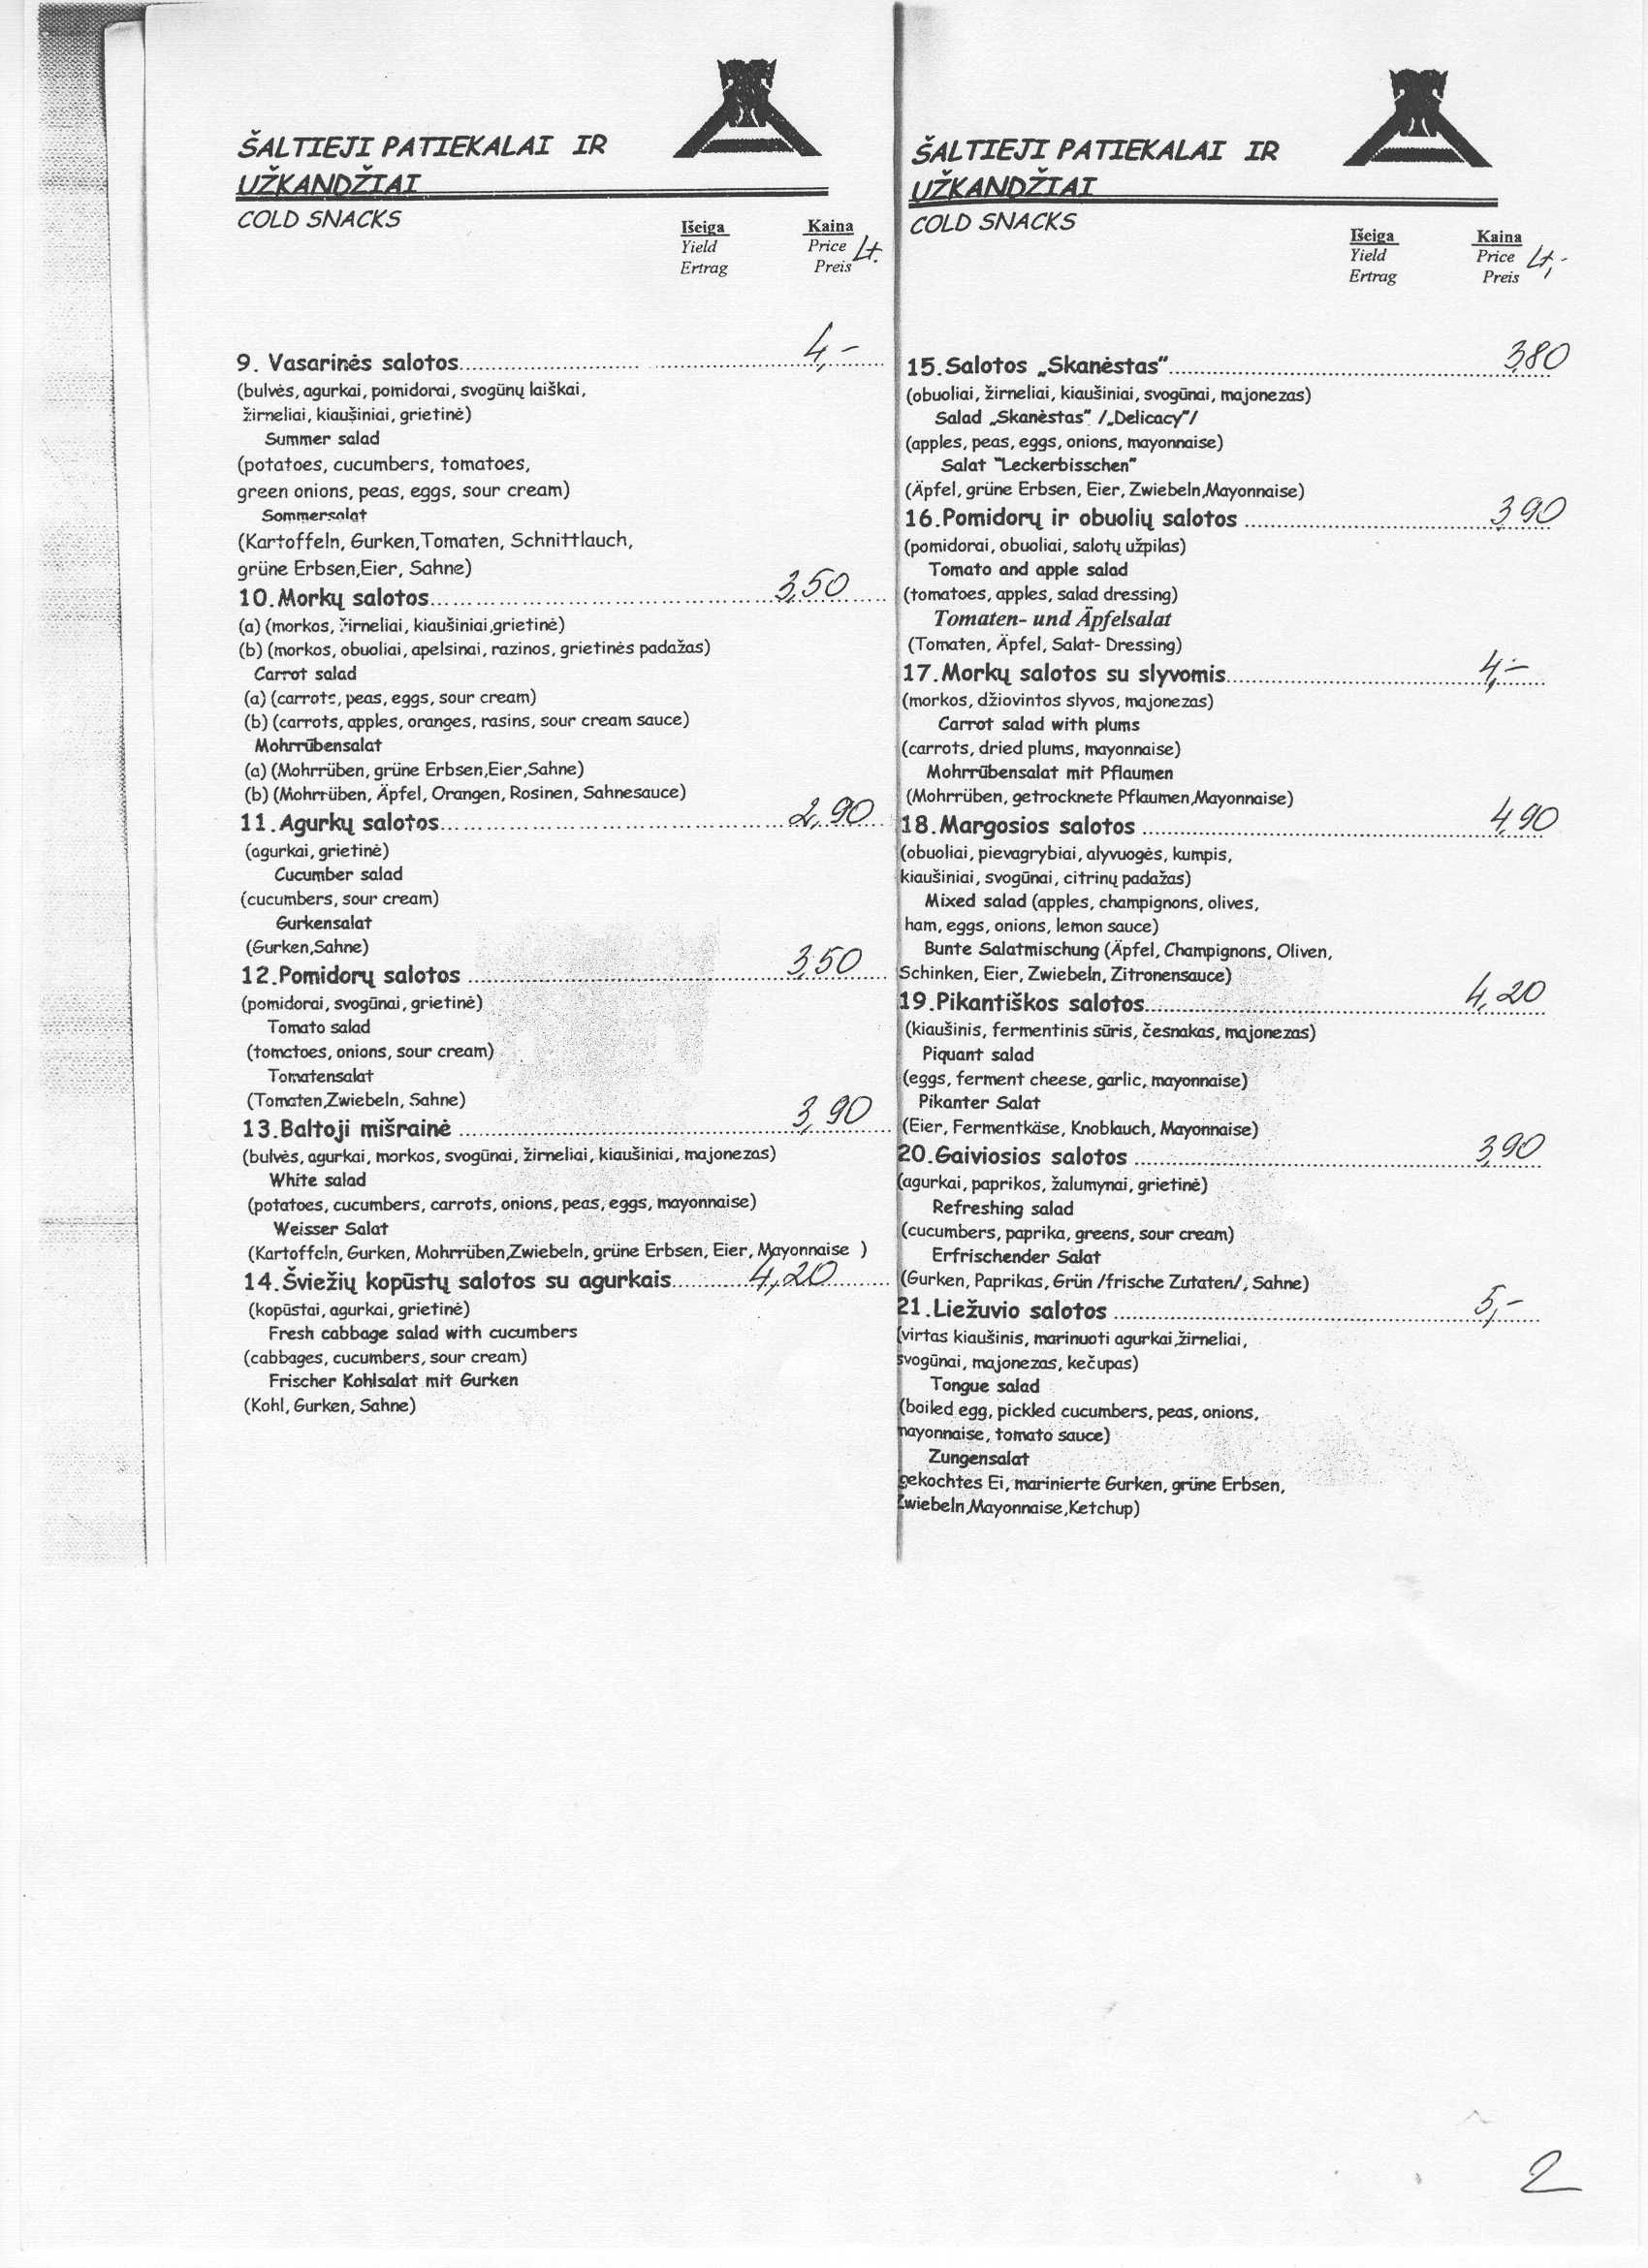 ŠALTIEJI PATIEKALAI IR
UŽKANDŽIAI
COLD SNACKS
Išeiga Kaina
Yield Price Lt.
Ertrag Preis
9. Vasarinės salotos 4,-
(bulvės, agurkai, pomidorai, svogūnų laiškai,
žirneliai, kiaušiniai, grietinė)
Summer salad
(potatoes, cucumbers, tomatoes,
green onions, peas, eggs, sour cream)
Sommersalat
(Kartoffeln, Gurken,Tomaten, Schnittlauch,
grüne Erbsen,Eier, Sahne)
10.Morkų salotos 3,50
(a) (morkos, žirneliai, kiaušiniai,grietinė)
(b) (morkos, obuoliai, apelsinai, razinos, grietinės padažas)
Carrot salad
(a) (carrots, peas, eggs, sour cream)
(b) (carrots, apples, oranges, rasins, sour cream sauce)
Mohrrübensalat
(a) (Mohrrüben, grüne Erbsen,Eier,Sahne)
(b) (Mohrrüben, Äpfel, Orangen, Rosinen, Sahnesauce)
11.Agurkų salotos 2,90
(agurkai, grietinė)
Cucumber salad
(cucumbers, sour cream)
Gurkensalat
(Gurken,Sahne)
12.Pomidorų salotos 3,50
(pomidorai, svogūnai, grietinė)
Tomato salad
(tomatoes, onions, sour cream)
Tomatensalat
(Tomaten,Zwiebeln, Sahne)
13.Baltoji mišrainė 3,90
(bulvės, agurkai, morkos, svogūnai, žirneliai, kiaušiniai, majonezas)
White salad
(potatoes, cucumbers, carrots, onions, peas, eggs, mayonnaise)
Weisser Salat
(Kartoffeln, Gurken, Mohrrüben,Zwiebeln, grüne Erbsen, Eier, Mayonnaise )
14.Šviežių kopūstų salotos su agurkais 4,20
(kopūstai, agurkai, grietinė)
Fresh cabbage salad with cucumbers
(cabbages, cucumbers, sour cream)
Frischer Kohlsalat mit Gurken
(Kohl, Gurken, Sahne)
ŠALTIEJI PATIEKALAI IR
UŽKANDŽIAI
COLD SNACKS
Išeiga Kaina
Yield Price Lt,-
Ertrag Preis
15.Salotos „Skanėstas" 3,80
(obuoliai, žirneliai, kiaušiniai, svogūnai, majonezas)
Salad „Skanėstas" /„Delicacy"/
(apples, peas, eggs, onions, mayonnaise)
Salat "Leckerbisschen"
(Äpfel, grüne Erbsen, Eier, Zwiebeln,Mayonnaise)
16.Pomidorų ir obuolių salotos 3,90
(pomidorai, obuoliai, salotų užpilas)
Tomato and apple salad
(tomatoes, apples, salad dressing)
Tomaten- und Äpfelsalat
(Tomaten, Äpfel, Salat- Dressing)
17.Morkų salotos su slyvomis 4,-
(morkos, džiovintos slyvos, majonezas)
Carrot salad with plums
(carrots, dried plums, mayonnaise)
Mohrrübensalat mit Pflaumen
(Mohrrüben, getrocknete Pflaumen,Mayonnaise)
18.Margosios salotos 4,90
(obuoliai, pievagrybiai, alyvuogės, kumpis,
kiaušiniai, svogūnai, citrinų padažas)
Mixed salad (apples, champignons, olives,
ham, eggs, onions, lemon sauce)
Bunte Salatmischung (Äpfel, Champignons, Oliven,
Schinken, Eier, Zwiebeln, Zitronensauce)
19.Pikantiškos salotos 4,20
(kiaušinis, fermentinis sūris, česnakas, majonezas)
Piquant salad
(eggs, ferment cheese, garlic, mayonnaise)
Pikanter Salat
(Eier, Fermentkäse, Knoblauch, Mayonnaise)
20.Gaiviosios salotos 3,90
(agurkai, paprikos, žalumynai, grietinė)
Refreshing salad
(cucumbers, paprika, greens, sour cream)
Erfrischender Salat
(Gurken, Paprikas, Grün /frische Zutaten/, Sahne)
21.Liežuvio salotos 5,-
(virtas kiaušinis, marinuoti agurkai,žirneliai,
svogūnai, majonezas, kečupas)
Tongue salad
(boiled egg, pickled cucumbers, peas, onions,
mayonnaise, tomato sauce)
Zungensalat
gekochtes Ei, marinierte Gurken, grüne Erbsen,
Zwiebeln,Mayonnaise,Ketchup)
2